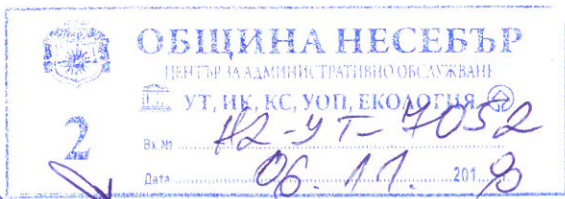 ОБЩИНА НЕСЕБЪР
ЦЕНТЪР ЗА АДМИНИСТРАТИВНО ОБСЛУЖВАНЕ
УТ, ИК, КС, УОП, ЕКОЛОГИЯ
2
Вх. № Н2-УТ-7052
Дата 06.11. 2018